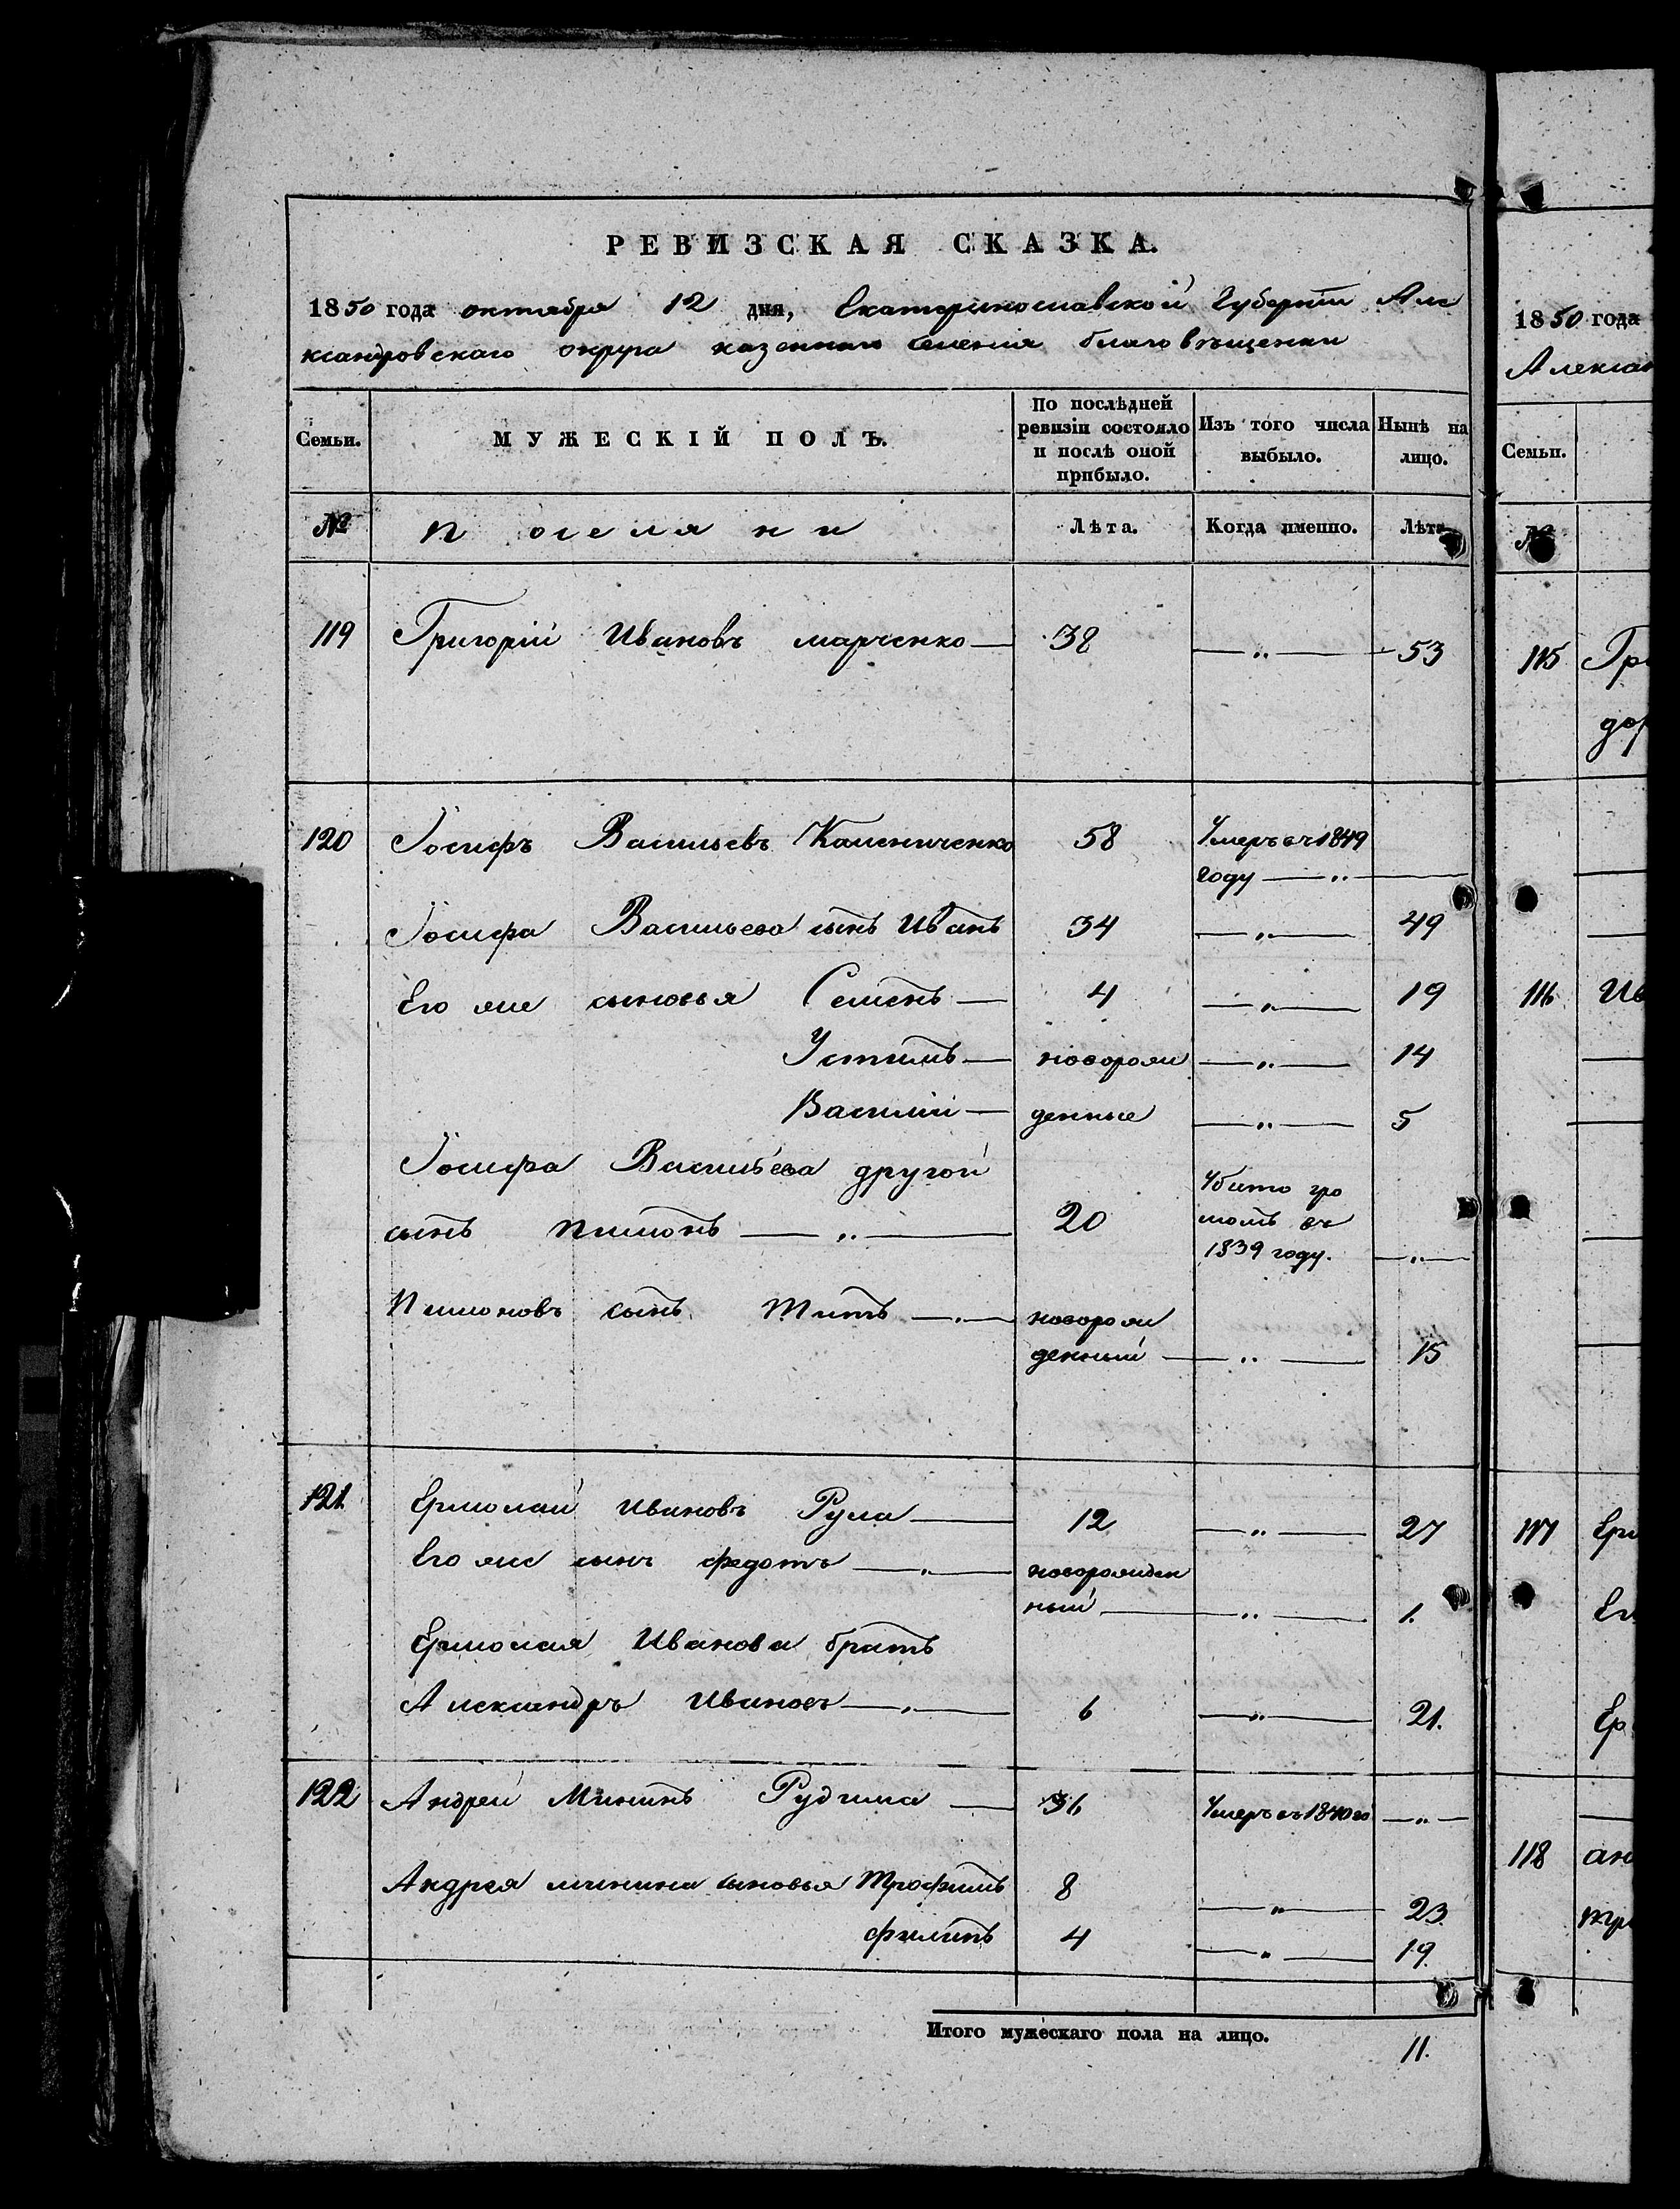 РЕВИЗСКАЯ СКАЗКА.
1850 года октября 12 дня, Екатеринославской Губерніи Але
ксандровскаго округа казеннаго селенія благовѣщенки
Семьи.
МУЖЕСКІЙ ПОЛЪ.
По послѣдней ревизіи состояло и послѣ оной прибыло.
Изъ того числа выбыло.
Нынѣ на лицо.
№ поселяни Лѣта. Когда именно. Лѣта
119 Григорій Ивановъ марченко — 38 — „ — 53
120 Іосифъ Васильевъ Камениченко 58 Умеръ въ 1849
году — „ —
Іосифа Васильева сынъ Иванъ 34 — „ — 49
Его же сыновья Семенъ — 4 — „ — 19
Устимъ — новорож — „ — 14
Василій — денные — „ — 5
Іосифа Васильева другой
сынъ пимонъ — „ — 20 Убито гро
момъ въ
1839 году. — „ —
Пимоновъ сынъ Титъ — „ — новорож
денный — „ — 15
121 Ермолай Ивановъ Рула — 12 — „ — 27
Его же сынъ федотъ — „ — новорожден
ный — „ — 1.
Ермолая Иванова братъ
Александръ Ивановъ — „ — 6 — „ — 21.
122 Андрей Мининъ Рудима — 36 Умеръ въ 1840 го — „ —
Андрея минина сыновья Трофимъ 8 — „ — 23.
филипъ 4 — „ — 19.
Итого мужескаго пола на лицо. 11.
1850 года
Алексан
Семьи.
№
115 Гри
дор
116 Ив
117 Ерм
Ег
Ер
118 ан
тр